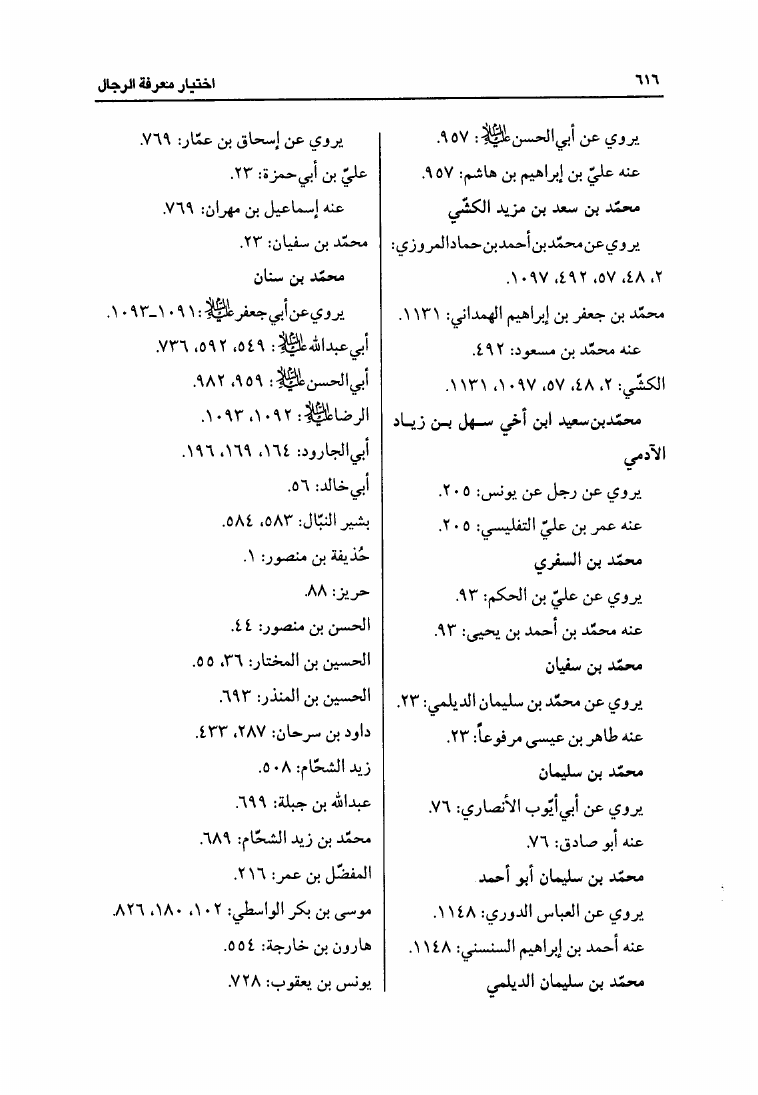 ٦١٦
اختيار معرفة الرجال
يروي عن أبي الحسن عليه السلام: ٩٥٧.
عنه عليّ بن إبراهيم بن هاشم: ٩٥٧.
محمّد بن سعد بن مزيد الكشّي
يروي عن محمّد بن أحمد بن حماد المروزي:
٢، ٤٨، ٥٧، ٤٩٢، ١٠٩٧.
محمّد بن جعفر بن إبراهيم الهمداني: ١١٣١.
عنه محمّد بن مسعود: ٤٩٢.
الكشّي: ٢، ٤٨، ٥٧، ١٠٩٧، ١١٣١.
محمّد بن سعيد ابن أخي سهل بن زياد
الآدمي
يروي عن رجل عن يونس: ٢٠٥.
عنه عمر بن عليّ التفليسي: ٢٠٥.
محمّد بن السفري
يروي عن عليّ بن الحكم: ٩٣.
عنه محمّد بن أحمد بن يحيى: ٩٣.
محمّد بن سفيان
يروي عن محمّد بن سليمان الديلمي: ٢٣.
عنه طاهر بن عيسى مرفوعاً: ٢٣.
محمّد بن سليمان
يروي عن أبي أيّوب الأنصاري: ٧٦.
عنه أبو صادق: ٧٦.
محمّد بن سليمان أبو أحمد
يروي عن العباس الدوري: ١١٤٨.
عنه أحمد بن إبراهيم السنسني: ١١٤٨.
محمّد بن سليمان الديلمي
يروي عن إسحاق بن عمّار: ٧٦٩.
عليّ بن أبي حمزة: ٢٣.
عنه إسماعيل بن مهران: ٧٦٩.
محمّد بن سفيان: ٢٣.
محمّد بن سنان
يروي عن أبي جعفر عليه السلام: ١٠٩١_١٠٩٣.
أبي عبدالله عليه السلام: ٥٤٩، ٥٩٢، ٧٣٦.
أبي الحسن عليه السلام: ٩٥٩، ٩٨٢.
الرضا عليه السلام: ١٠٩٢، ١٠٩٣.
أبي الجارود: ١٦٤، ١٦٩، ١٩٦.
أبي خالد: ٥٦.
بشير النبّال: ٥٨٣، ٥٨٤.
حُذيفة بن منصور: ١.
حريز: ٨٨.
الحسن بن منصور: ٤٤.
الحسين بن المختار: ٣٦، ٥٥.
الحسين بن المنذر: ٦٩٣.
داود بن سرحان: ٢٨٧، ٤٣٣.
زيد الشحّام: ٥٠٨.
عبدالله بن جبلة: ٦٩٩.
محمّد بن زيد الشحّام: ٦٨٩.
المفضّل بن عمر: ٢١٦.
موسى بن بكر الواسطي: ١٠٢، ١٨٠، ٨٢٦.
هارون بن خارجة: ٥٥٤.
يونس بن يعقوب: ٧٢٨.